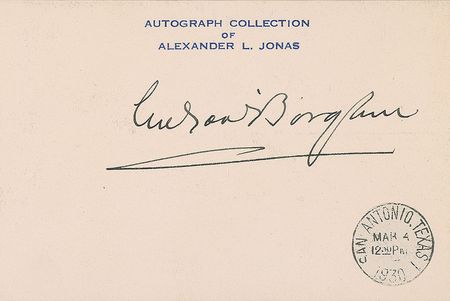 AUTOGRAPH COLLECTION
OF
ALEXANDER L. JONAS
Gutzon Borglum
SAN ANTONIO, TEXAS 1
MAR 4
12:30 PM
1930